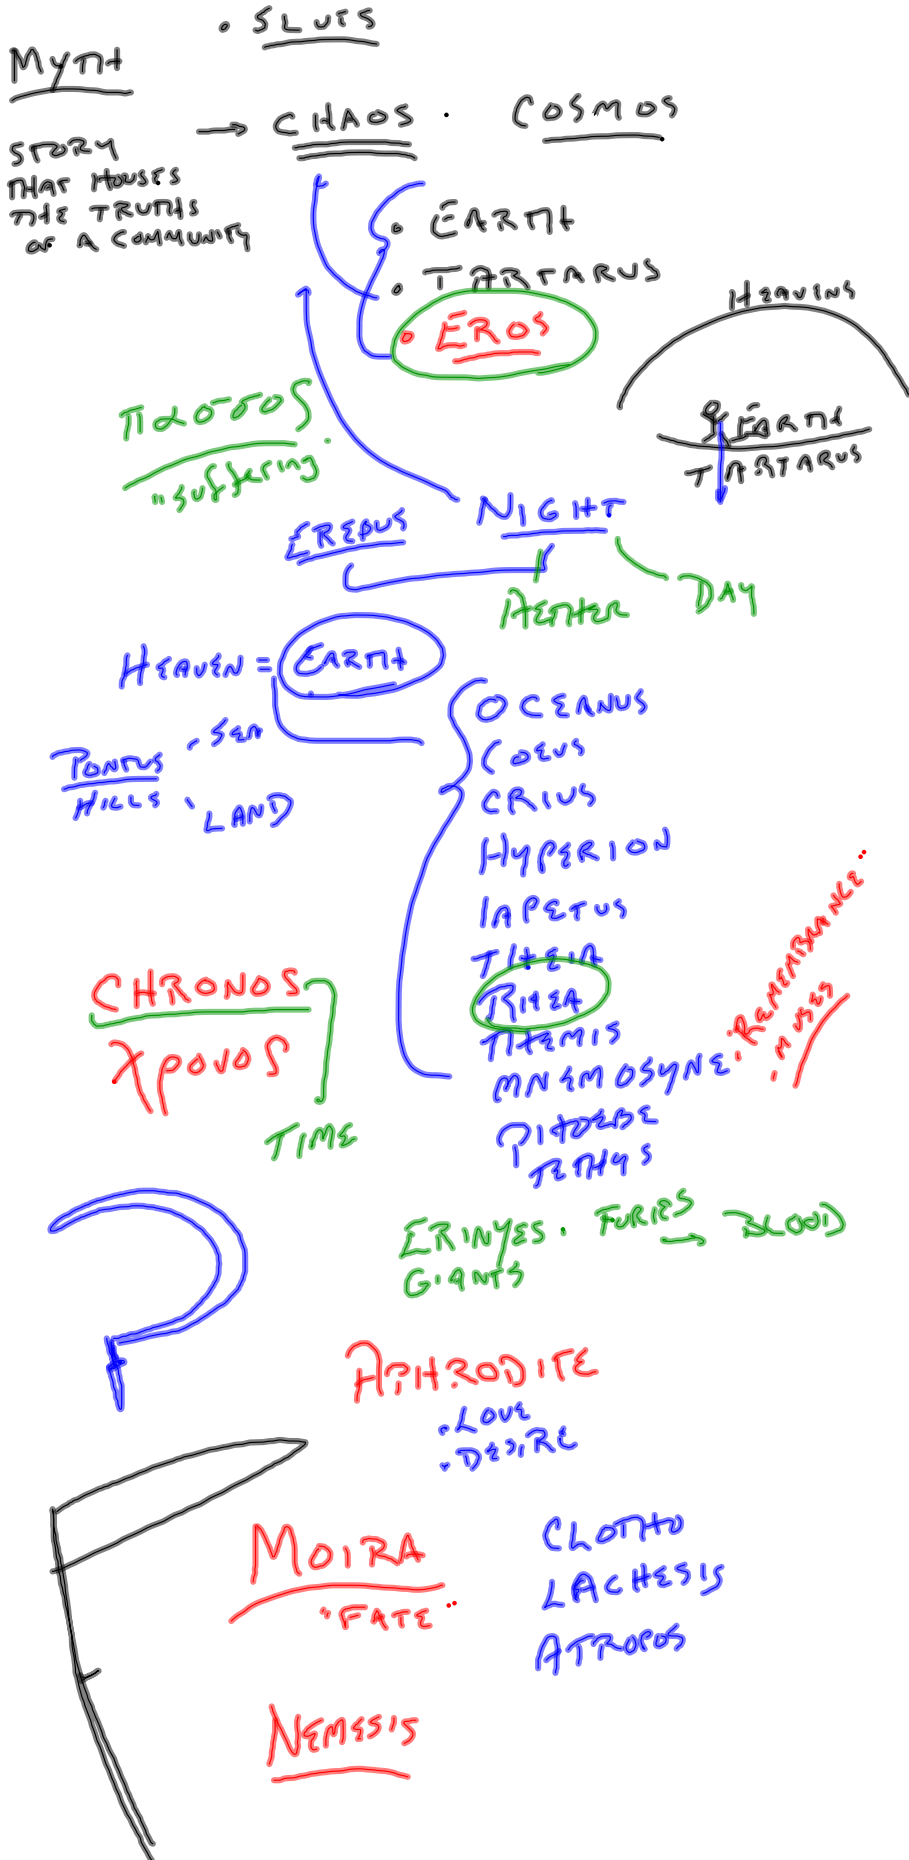 • SLUTS
MYTH
→ CHAOS • COSMOS
STORY
THAT HOUSES
THE TRUTHS
OF A COMMUNITY
• EARTH
• TARTARUS
• EROS
HEAVENS
EARTH
TARTARUS
πασσος
"suffering"
NIGHT
EREBUS
AETHER
DAY
HEAVEN = EARTH
PONTUS • SEA
HILLS • LAND
OCEANUS
COEUS
CRIUS
HYPERION
IAPETUS
THEIA
RHEA
THEMIS
MNEMOSYNE • REMEMBRANCE
• MUSES
PHOEBE
TETHYS
CHRONOS
χρονος
TIME
ERINYES • FURIES → BLOOD
GIANTS
APHRODITE
• LOVE
• DESIRE
MOIRA
"FATE"
CLOTHO
LACHESIS
ATROPOS
NEMESIS